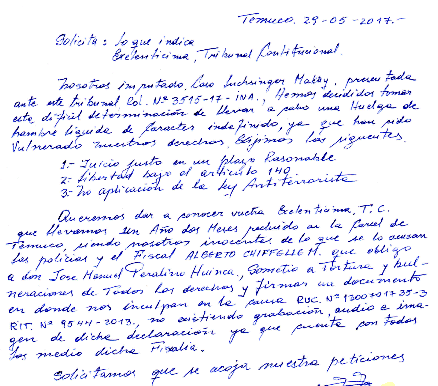 Temuco. 29-05-2017.-
Solicita: lo que indica
Exelenticima, Tribunal Contitucional.
Nosotros imputado, Caso Luchsinger Makay, presentada
ante este tribunal Rol. Nº 3515-17-INA., Hemos decidido tomar
esta dificil determinación de llevar a cabo una Huelga de
hambre líquida de caracter indefinido, ya que han sido
Vulnerado nuestros derechos. Exijimos las siguientes.
1.- Juicio justo en un plazo Rasonable
2- libertad bajo el articulo 140
3- No aplicación de la ley Antiterrorista
Queremos dar a conocer vuetra Exelenticima, T.C.
que llevamos un Año dos Meses recluido en la Carcel de
Temuco, siendo nosotros inocentes de lo que se lo acusan
las policias y el Fiscal ALBERTO CHIFFELLE M. que obligo
a don Jose Manuel Peralino Huinca, Sometio a Tortura y bul-
neraciones de Todos los derechos y firmar un documento
en donde nos inculpan en la causa RUC. Nº 1300701735-3
RIT. Nº 9544-2013., no existiendo grabación, audio e ima-
gen de dicha declaración ya que cuenta con todos
los medio dicha Fisalia.
Solicitamos que se acoja nuestra peticiones